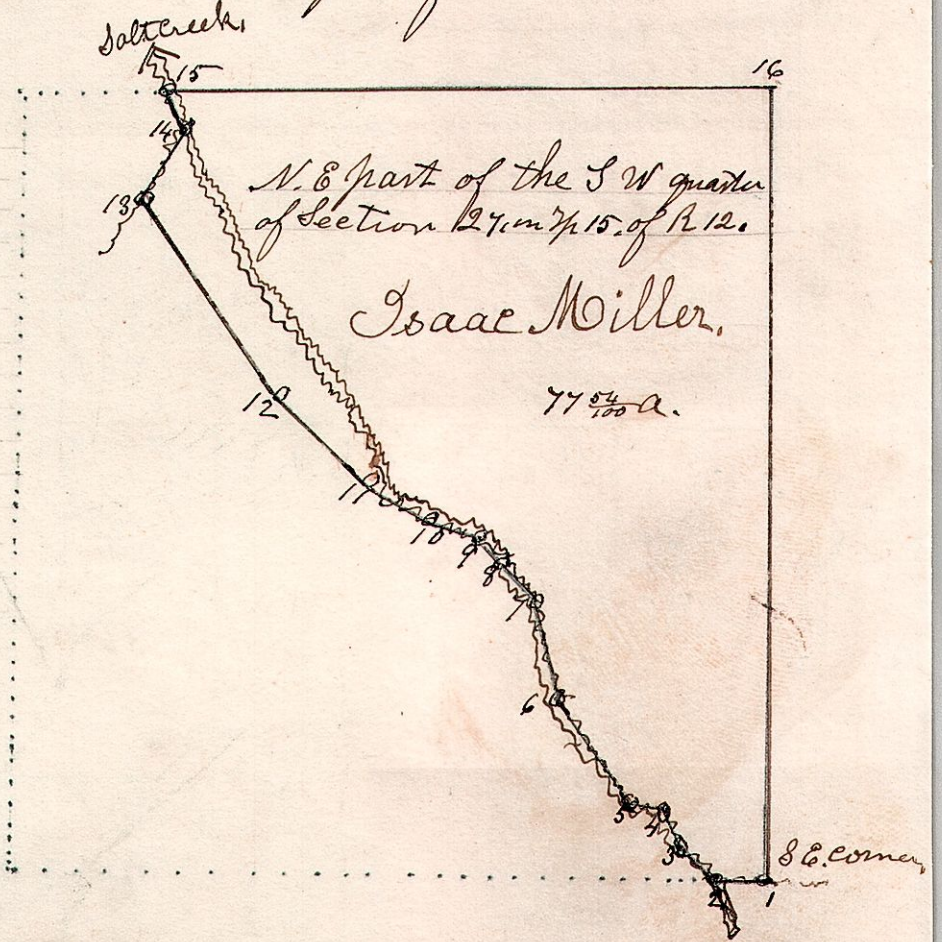 Salt Creek,
15
16
14
N.E part of the S W quarter
13
of Section 27, in Tp 15, of R 12.
Isaac Miller.
12
77 54/100 a.
11
10
9
8
7
6
5
4
3
S E. corner,
2
1